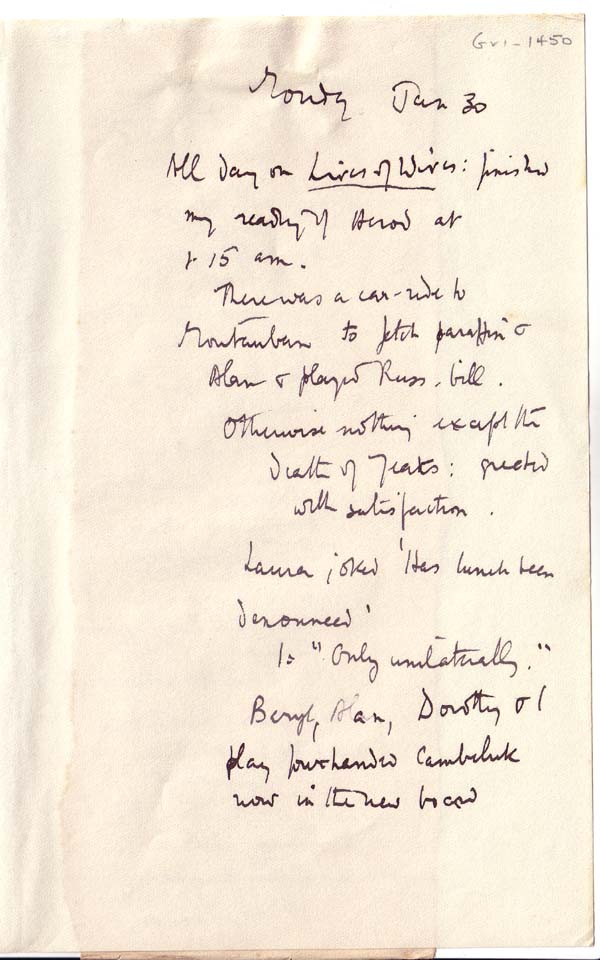 Gv1-1450
Monday Jan 30
All day on Lives of Wives: finished
my reading of Herod at
15 am.
There was a car-ride to
Montauban to fetch paraffin &
Alan & played Russ. bill.
Otherwise nothing except the
death of Yeats: greeted
with satisfaction.
Laura joked 'Has lunch been
denounced'
I: "Only unilaterally."
Beryl, Alan, Dorothy & I
play four-handed
now in the new board